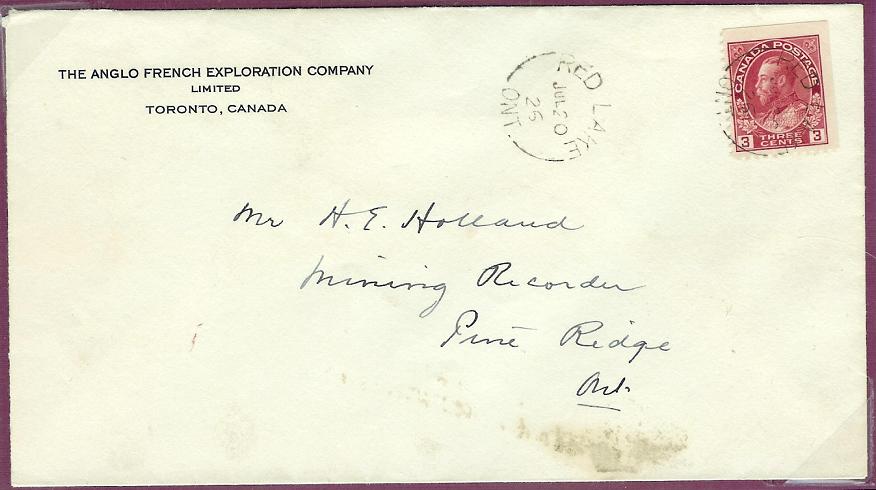 THE ANGLO FRENCH EXPLORATION COMPANY
LIMITED
TORONTO, CANADA
RED LAKE
JUL 20
26
ONT.
CANADA POSTAGE
3 THREE CENTS 3
Mr H. E. Holland
Mining Recorder
Pine Ridge
Ont.